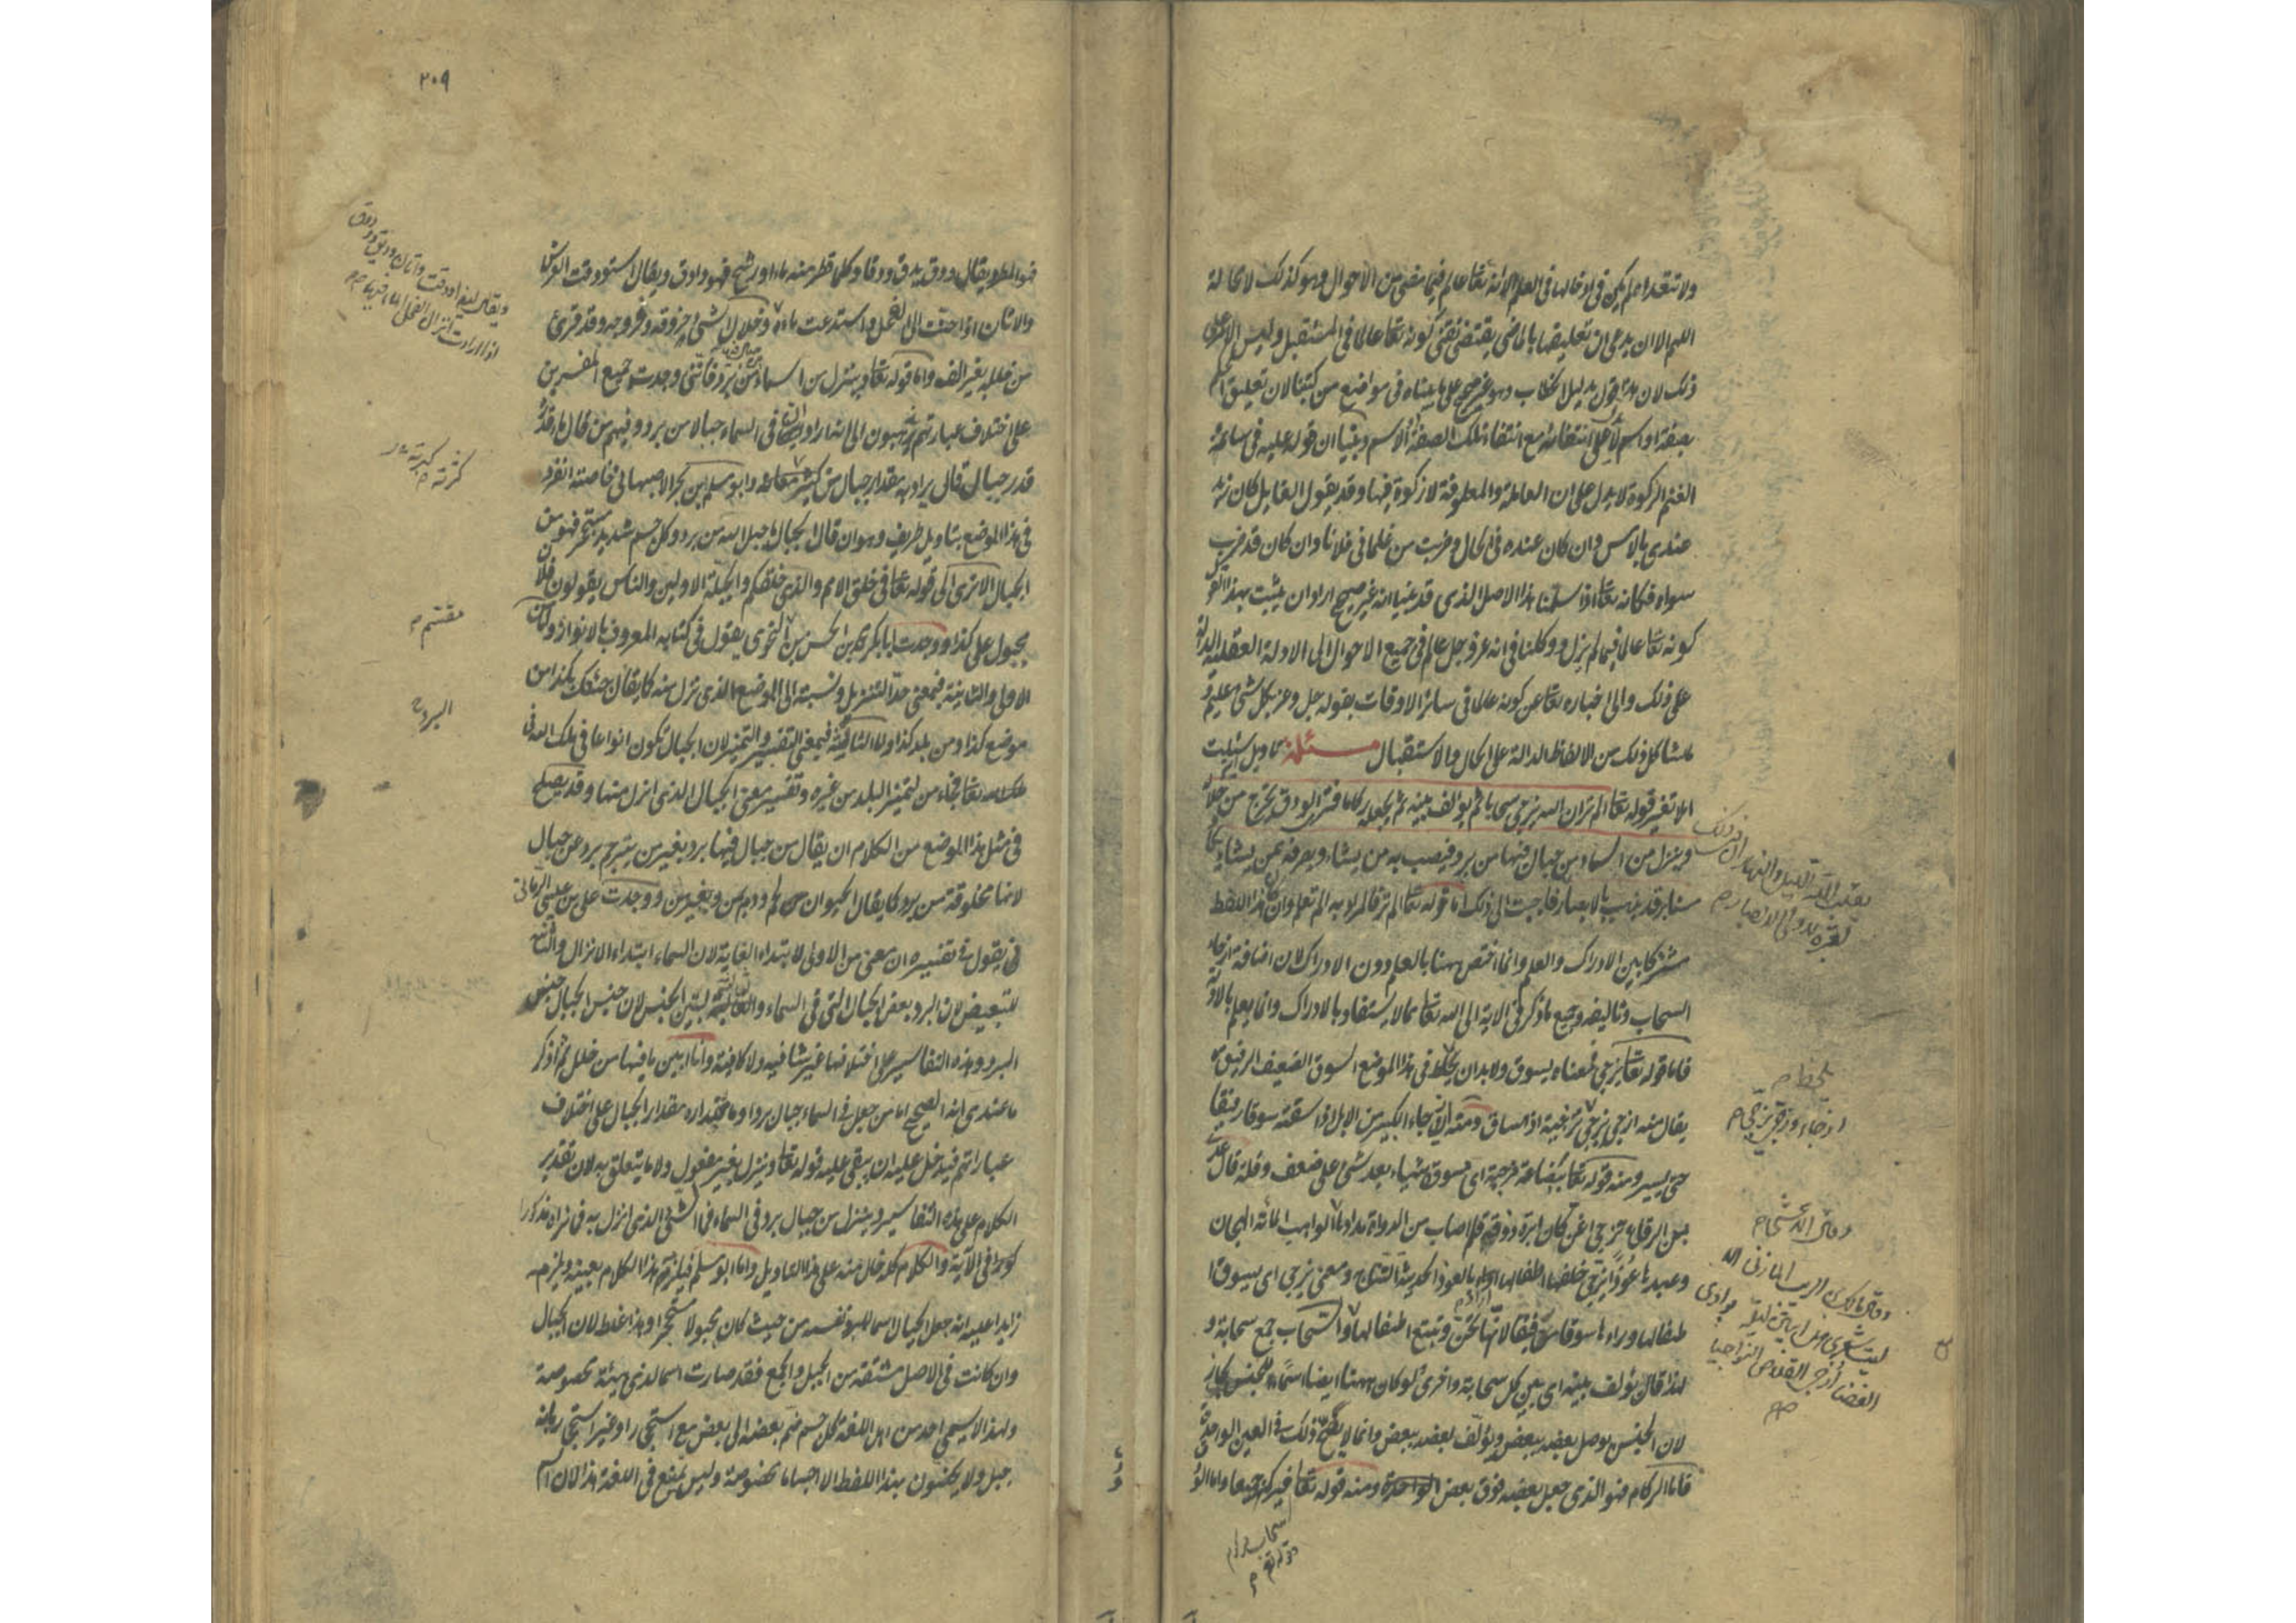 ولا تتعداهم لم يكن في ادخالها في العلم الا انه تعا عالم فيما مضى من الاحوال وهو كذلك لا محالة
اللهم الا ان يدعى ان تعليقها بالماضي يقتضي نفي كونه تعا عالما في المستقبل وليس الامر على
ذلك لان هذا قول بدليل الخطاب وهو غير صحيح على ما بيناه في مواضع من كتبنا لان تعليق الحكم
بصفة او اسم لا يدل على انتفائه مع انتفاء تلك الصفة والاسم وبينا ان قوله عليه في سائمة
الغنم الزكوة لا يدل على ان العاملة والمعلوفة لا زكوة فيها وقد يقول القايل كان زيد
عندي بالامس وان كان عنده في الحال وضربت من غلماني فلانا وان كان قد ضرب
سواه فكانه تعا اذا سلمنا هذا الاصل الذي قد بينا انه غير صحيح اراد ان يثبت بهذا القول
كونه تعا عالما فيما لم يزل ووكلنا في انه عز وجل عالم في جميع الاحوال الى الادلة العقلية الدالة
على ذلك والى اخباره تعا عن كونه عالما في سائر الاوقات بقوله جل وعز بكل شئ عليم و
ما شاكل ذلك من الالفاظ الدالة على الحال والاستقبال مسئلة تاويل سئلت
املا تفسير قوله تعا الم تر ان الله يزجي سحابا ثم يؤلف بينه ثم يجعله ركاما فترى الودق يخرج من خلاله
وينزل من السماء من جبال فيها من برد فيصيب به من يشاء ويصرفه عمن يشاء يكاد
سنا برقه يذهب بالابصار فاجبت الى ذلك اما قوله تعا الم تر فالمراد به الم تعلم وان كان هذا اللفظ
مشتركا بين الادراك والعلم وانما اختص ههنا بالعلم دون الادراك لان اضافة ازجاء
السحاب وتاليفه وجميع ما ذكر في الاية الى الله تعا مما لا يستفاد بالادراك وانما يعلم بالادلة
فاما قوله تعا يزجي فمعناه يسوق ولا بد ان يلحظ في هذا الموضع السوق الضعيف الرفيق
يقال منه ازجى يزجي تزجية اذا ساق ومنه ازجاء الكسير من الابل اذا سقته سوقا رفيقا
حتى يسير ومنه قوله تعا ببضاعة مزجية اي مسوقة شيئا بعد شئ على ضعف وقلة قال عدي
بن الرقاع تزجي اغن كأن ابرة روقه قلم اصاب من الدواة مدادها الواهب المائة الهجان
وعبدها عوذا تزجي خلفها اطفالها اراد بالعوذ الحديثة النتاج ومعنى تزجي اي يسوق
اطفالها وراءها سوقا رفيقا لانها تحن وتتبع اطفالها والسحاب جمع سحابة و
لهذا قال يؤلف بينه اي بين كل سحابة واخرى ولو كان ههنا ايضا اسما للجنس لجاز
لان الجنس يوصل بعضه ببعض ويؤلف بعضه ببعض وانما لا يصح ذلك في العين الواحدة
فاما الركام فهو الذي جعل بعضه فوق بعض ومنه قوله تعا فيركمه جميعا واما الو
يقلب الله الليل والنهار ان في ذلك
لعبرة لاولي الابصار م
يلحظ م
ازجاء وزجى يزجي م
وقال الاعشى م
وقال مالك بن الريب المازني الا
ليت شعري هل ابيتن ليلة بوادي
الغضا ازجي القلاص النواجيا
سحاب ركام
٢٠٩
فهو المطر ويقال ودق يدق ودقا وكل ما قطر منه ماء او رشح فهو وادق ويقال استودقت الفرس
والاتان اذا حنت الى الفحل واستدعت ماءه وخلال الشئ خروقه وفروجه وقد قرئ
من خلله بغير الف واما قوله تعا وينزل من السماء من جبال فيها من برد فانني وجدت جميع المفسرين
على اختلاف عباراتهم يذهبون الى انه اراد ان في السماء جبالا من برد وفيهم من قال ما قدره
قدر جبال قال يراد به مقدار جبال من كثرته وابو مسلم بن بحر الاصبهاني خاصة انفرد
في هذا الموضع بتاويل طريف وهو ان قال الجبال ما جبل الله من برد وكل جسم شديد مستحجر فهو من
الجبال الا ترى الى قوله تعا في خلق الامم والذي خلقكم والجبلة الاولين والناس يقولون فلان
مجبول على كذا ووجدت ابا بكر محمد بن الحسن بن مقسم النحوي يقول في كتابه المعروف بالانوار واما من
الاولى والثانية فبمعنى حد التنزيل ونسبته الى الموضع الذي نزل منه كما يقال جئتك بكذا من
موضع كذا ومن بلد كذا واما الثالثة فبمعنى التفسير والتمييز لان الجبال تكون انواعا في ملك الله
تعا فجاء من لتمييز البلد من غيره وتفسير معنى الجبال الذي انزل منها وقد يصلح
في مثل هذا الموضع من الكلام ان يقال من جبال فيها برد بغير من يترجم برد عن جبال
لانها مخلوقة من برد كما يقال الحيوان من لحم ودم من وبغير من ووجدت علي بن عيسى الرماني
يقول في تفسيره ان معنى من الاولى لابتداء الغاية لان السماء ابتداء الانزال والثانية
للتبعيض لان البرد بعض الجبال التي في السماء والثالثة لتبيين الجنس لان جنس الجبال جنس
البرد وهذه التفاسير على اختلافها غير شافية ولا كافية وانا ابين ما فيها من خلل ثم اذكر
ما عندي انه الصحيح اما من جعل في السماء جبال برد او ما مقداره مقدار الجبال على اختلاف
عباراتهم فيدخل عليه ان يبقى عليه قوله تعا وينزل بغير مفعول ولا ما يتعلق به لان تقدير
الكلام على هذه التفاسير وينزل من جبال برد في السماء فما الشئ الذي انزل به فما نراه مذكورا
في الآية والكلام كله خال منه على هذا التاويل واما ابو مسلم فيلزمه هذا الكلام بعينه ويلزمه
زايدا عليه انه جعل الجبال اسما للبرد نفسه من حيث كان مجبولا مستحجرا وهذا غلط لان الجبال
وان كانت في الاصل مشتقة من الجبل والجمع فقد صارت اسما لذي هيئة مخصوصة
ولهذا لا يسمي احد من اهل اللغة كل جسم ضم بعضه الى بعض مع استحجار او غير استحجار بانه
جبل ولا يخصون بهذا اللفظ الا اجساما مخصوصة وليس يمتنع في اللغة هذا لان اسم
ويقال ايضا اودقت واتان وديق وودوق
اذا ارادت انزال الفحل الماء فيها م
كثرته م
مقسم م
البرد